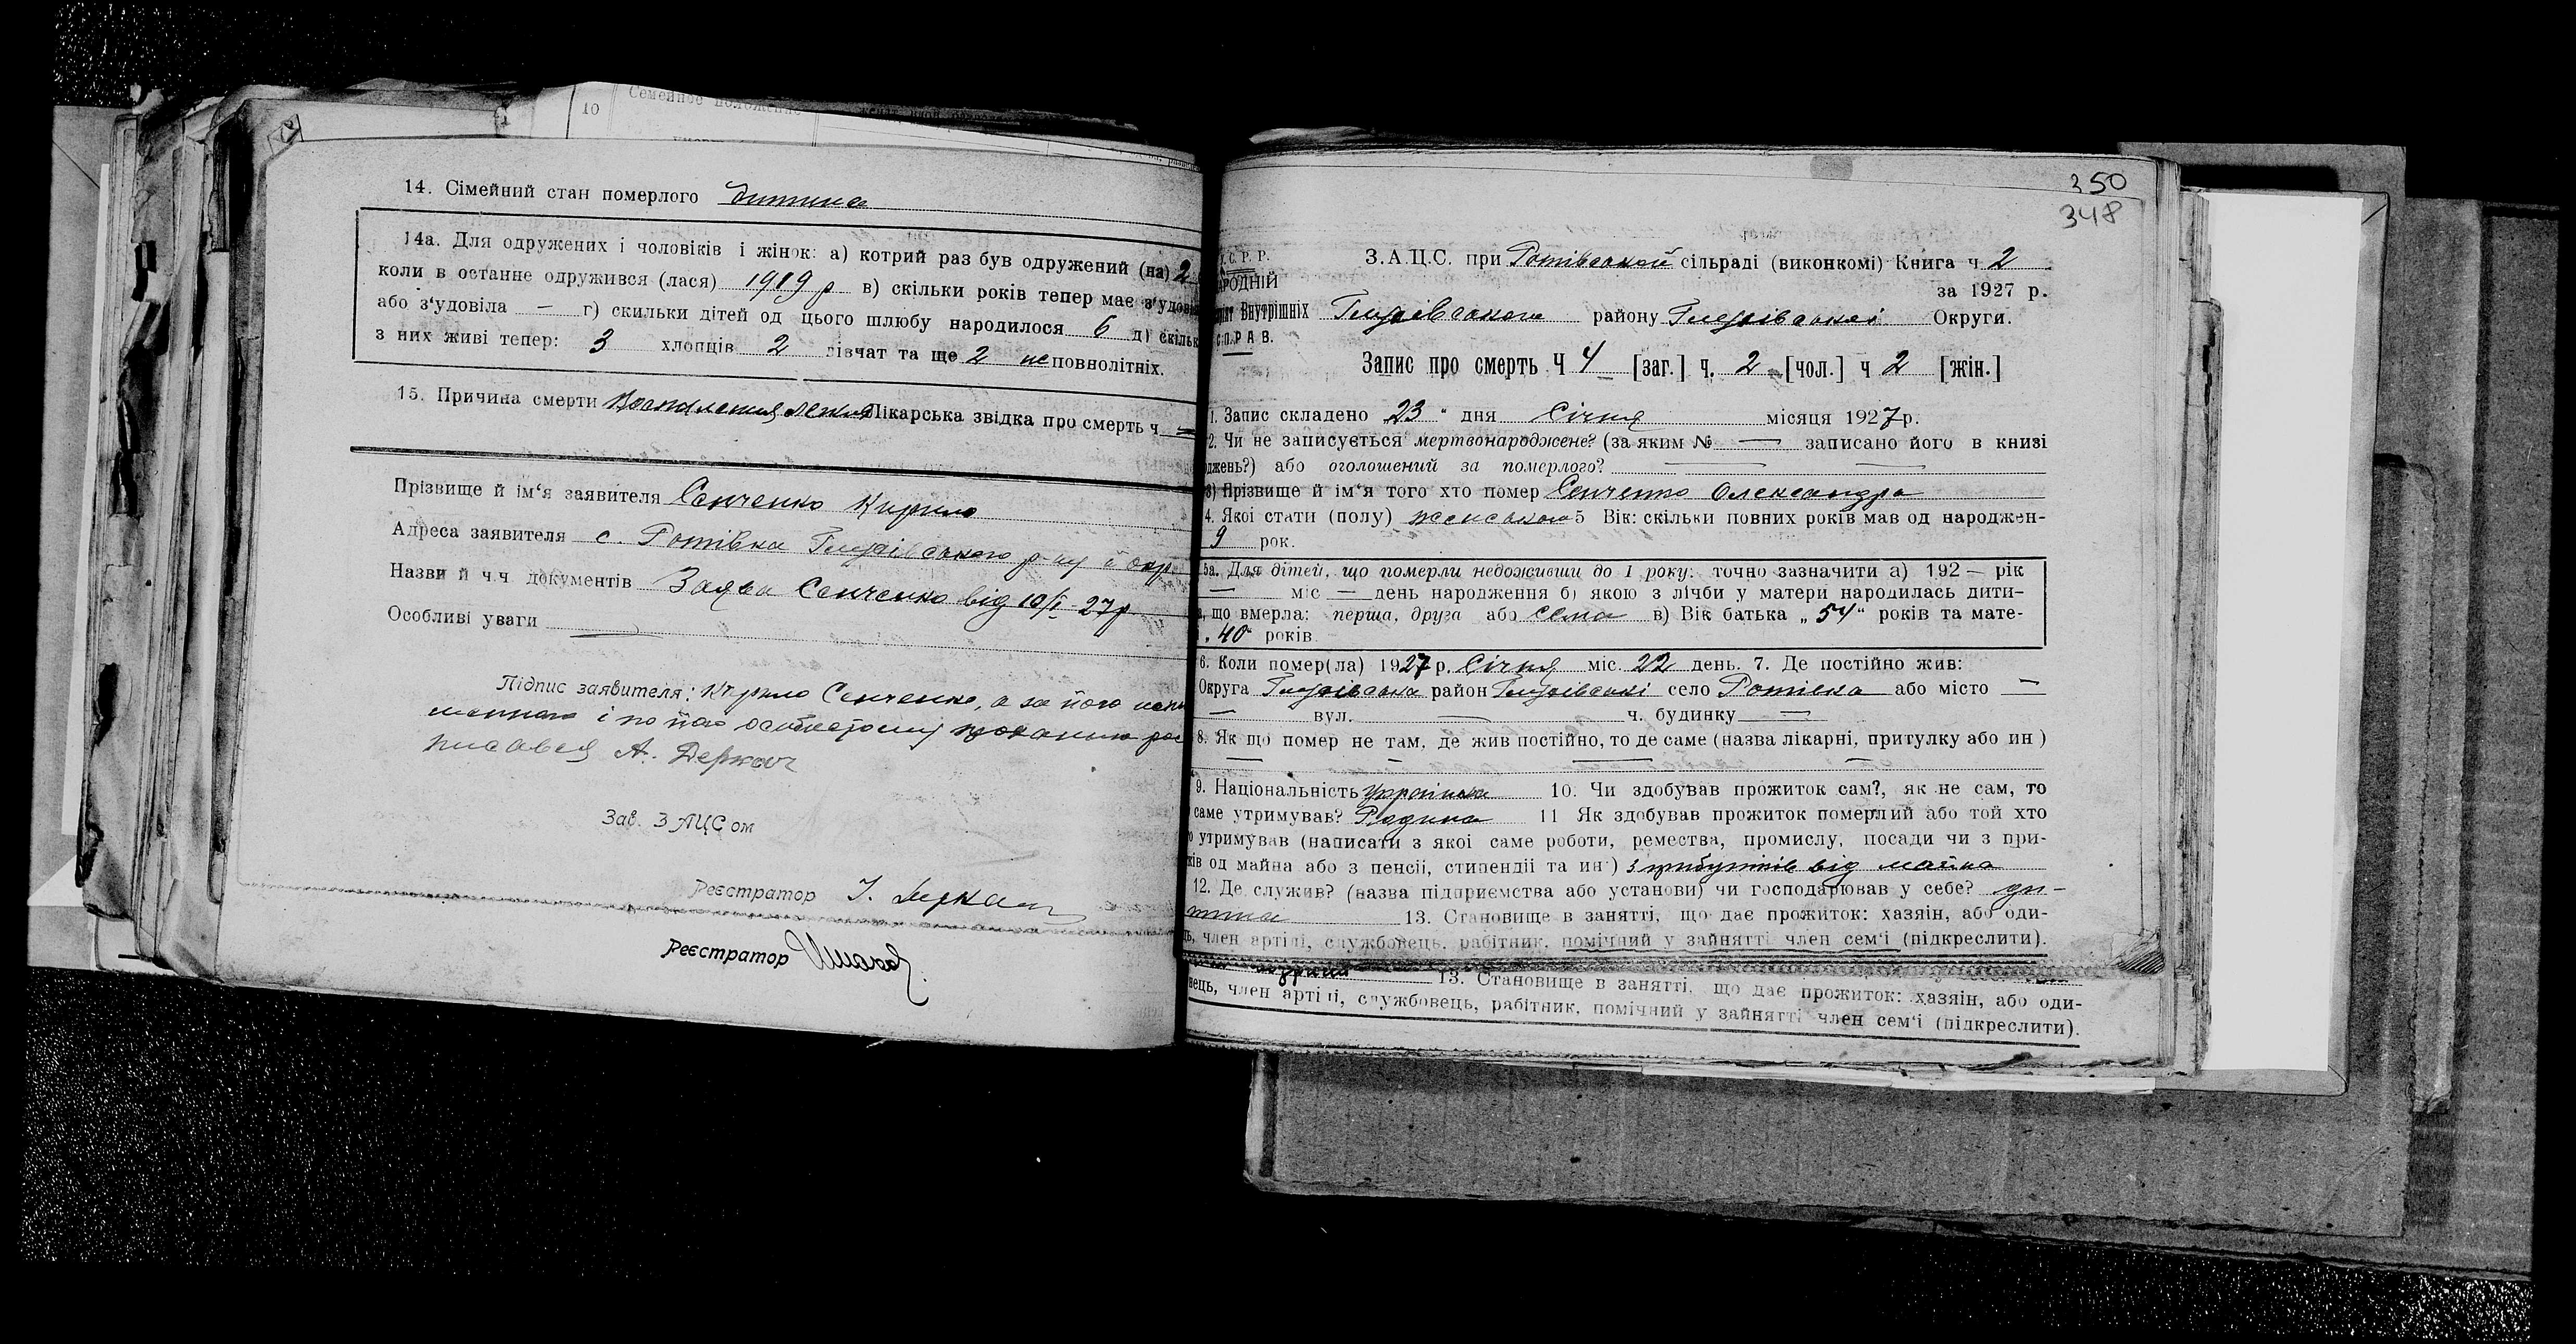 10 Семейное положение
14. Сімейний стан померлого дитина
14а. Для одружених і чоловіків і жінок: а) котрий раз був одружений (на) 2
коли в останне одружився (лася) 1919 р в) скільки років тепер має з'удові
або з'удовіла — г) скильки дітей од цього шлюбу народилося 6 д) скільк
з них живі тепер: 3 хлопців 2 дівчат та ще 2 неповнолітніх.
15. Причина смерти Лікарська звідка про смерть ч —
Прізвище й ім'я заявителя Сенченко Кирило
Адреса заявителя с. Ротівка Глухівського р-ну й окр.
Назви й ч.ч документів Заява Сенченко від 10/I-27р
Особливі уваги —
Підпис заявителя: Кирило Сенченко, а за його
і по його
писався А. Деркач
Зав. ЗАЦСом
Реєстратор І. Деркач
Реєстратор
350
348
С.Р.Р.
РОДНІЙ
Внутрішніх
СПРАВ.
З.А.Ц.С. при Ротівській сільраді (виконкомі) Книга ч 2
за 1927 р.
Глухівського району Глухівської Округи.
Запис про смерть Ч 4 [заг.] ч. 2 [чол.] ч 2 [жін.]
1. Запис складено „23" дня Січня місяця 1927р.
2. Чи не записується мертвонароджене? (за яким № — записано його в книзі
джень?) або оголошений за померлого? — —
3) Прізвище й ім'я того хто помер Сенченко Олександра
4. Якоі стати (полу) женського 5 Вік: скільки повних років мав од народжен-
9 рок.
5а. Для дітей, що померли недоживши до 1 року: точно зазначити а) 192 — рік
— міс — день народження б) якою з лічби у матери народилась дити-
а, що вмерла: перша, друга або сема в) Вік батька „54" років та мате-
„40" років
6. Коли помер(ла) 1927р. Січня міс. 22 день. 7. Де постійно жив:
Округа Глухівська район Глухівські село Ротівка або місто —
— вул. — ч. будинку —
8. Як що помер не там, де жив постійно, то де саме (назва лікарні, притулку або ин)
— — — —
9. Національність Українка 10. Чи здобував прожиток сам?, як не сам, то
саме утримував? Родина 11 Як здобував прожиток померлий або той хто
о утримував (написати з якоі саме роботи, ремества, промислу, посади чи з при-
ків од майна або з пенсіі, стипендіі та ин) з прибутків від майна
12. Де служив? (назва підприємства або установи) чи господарював у себе? ди-
тина 13. Становище в занятті, що дає прожиток: хазяін, або оди-
ць, член артілі, службовець, рабітник, помічний у зайнятті член сем'і (підкреслити).
13. Становище в занятті, що дає прожиток: хазяін, або оди-
нець, член артілі, службовець, рабітник, помічний у зайнятті член сем'і (підкреслити).